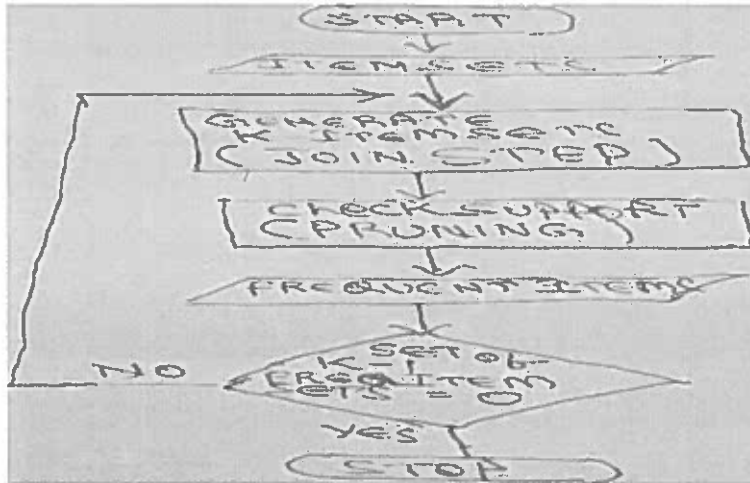 START
ITEMSETS
GENERATE
K ITEMSETS
(JOIN STEP)
CHECK SUPPORT
(PRUNING)
FREQUENT ITEMS
K SET OF
ITEM
SETS = 0
NO
YES
STOP